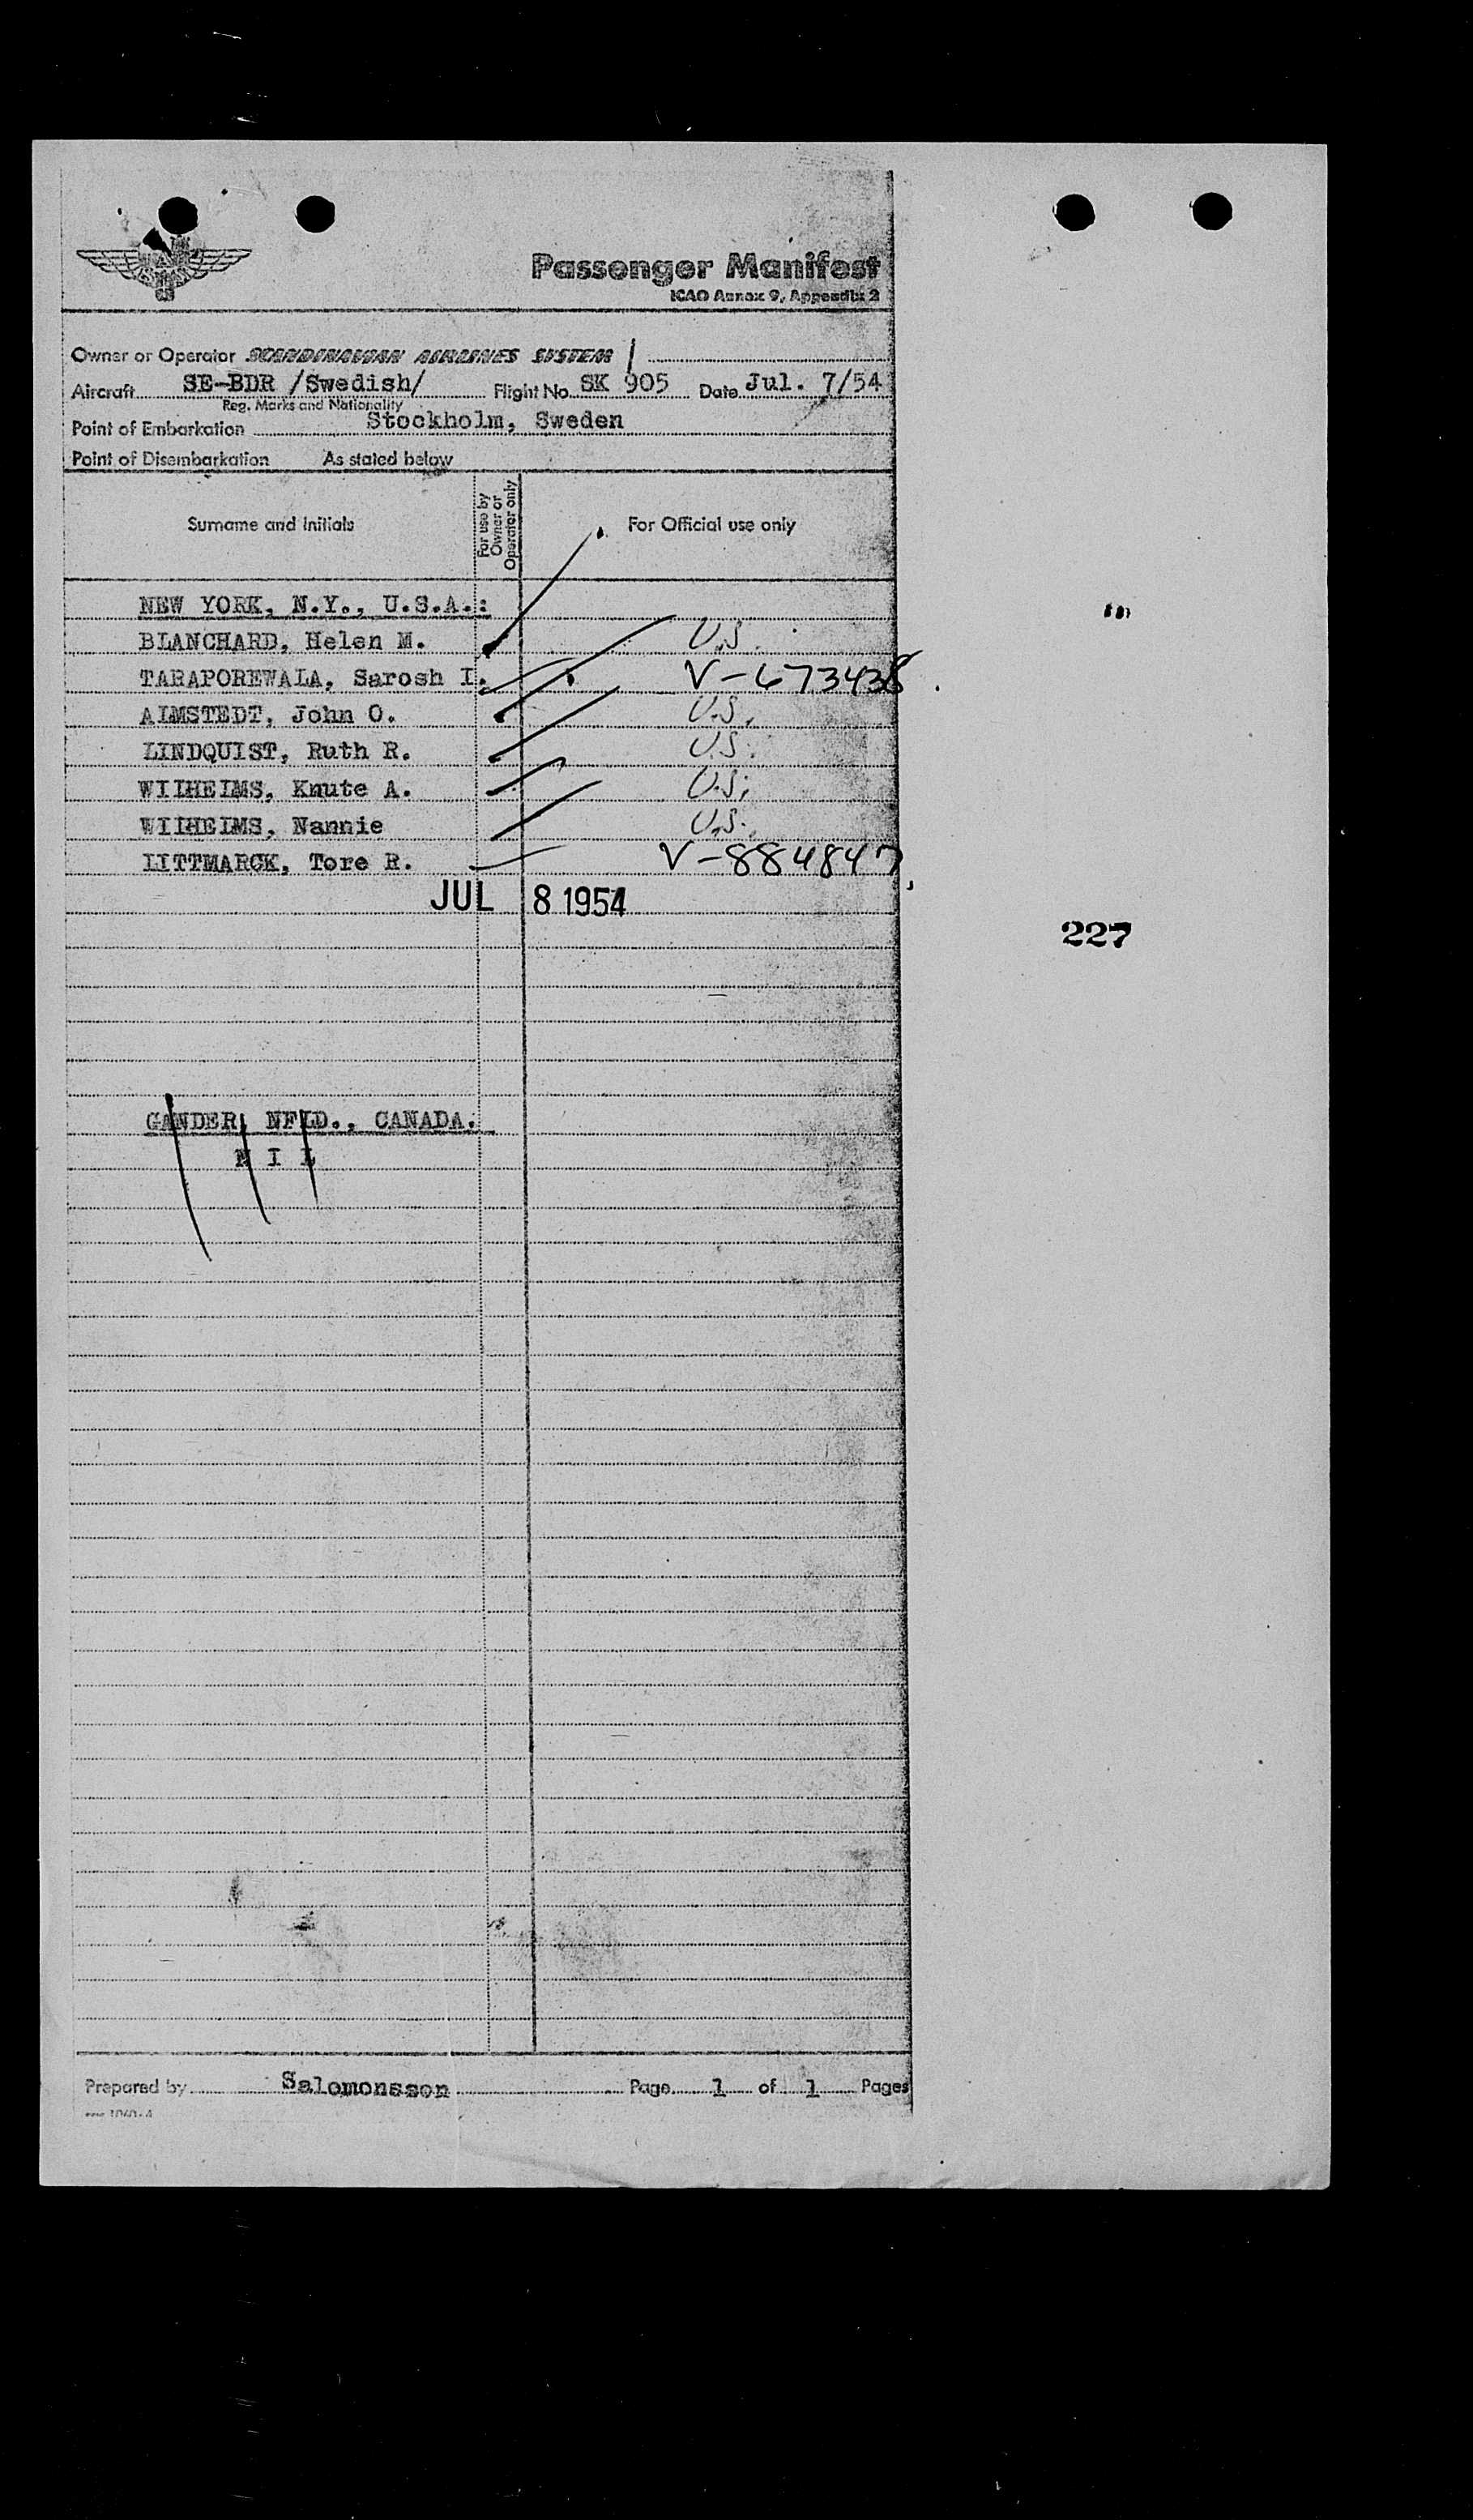 SAS
Passenger Manifest
ICAO Annex 9, Appendix 2
Owner or Operator SCANDINAVIAN AIRLINES SYSTEM
Aircraft SE-BDR /Swedish/ Flight No. SK 905 Date Jul. 7/54
Reg. Marks and Nationality
Point of Embarkation Stockholm, Sweden
Point of Disembarkation As stated below
Surname and Initials For use by Owner or Operator only For Official use only
NEW YORK, N.Y., U.S.A.:
BLANCHARD, Helen M. U.S.
TARAPOREWALA, Sarosh I. V-673438
ALMSTEDT, John O. U.S.
LINDQUIST, Ruth R. U.S.
WILHELMS, Knute A. U.S.
WILHELMS, Nannie U.S.
LITTMARCK, Tore R. V-884847
JUL 8 1954
227
GANDER, NFLD., CANADA.
N I L
Prepared by Salomonsson Page 1 of 1 Pages